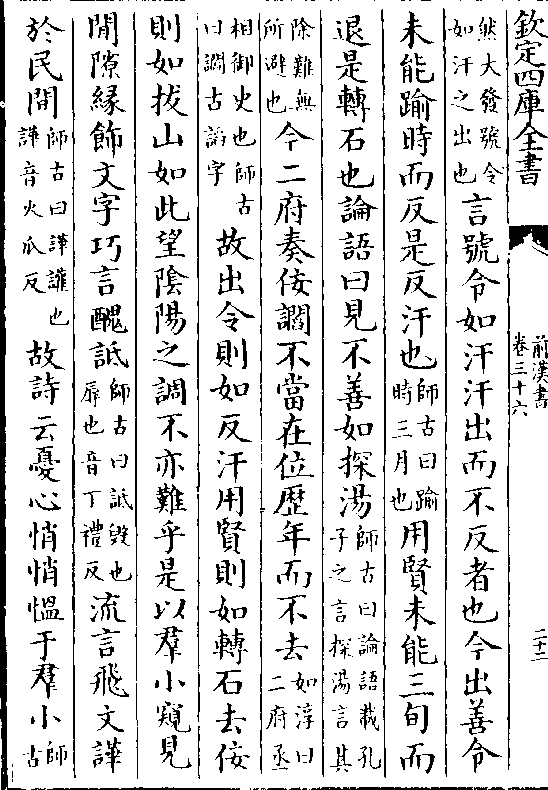 欽定四庫全書
前漢書
卷三十六
二十二
然大發號令
如汗之出也
言號令如汗汗出而不反者也今出善令
未能踰時而反是反汗也
師古曰踰
時三月也
用賢未能三旬而
退是轉石也論語曰見不善如探湯
師古曰論語載孔
子之言探湯言其
除難無
所避也
今二府奏佞讇不當在位歴年而不去
如淳曰
二府丞
相御史也師古
曰讇古謟字
故出令則如反汗用賢則如轉石去佞
則如拔山如此望隂陽之調不亦難乎是以羣小窺見
閒隙縁飾文字巧言醜詆
師古曰詆毁也
辱也音丁禮反
流言飛文譁
於民間
師古曰譁讙也
譁音火瓜反
故詩云憂心悄悄愠于羣小
師
古